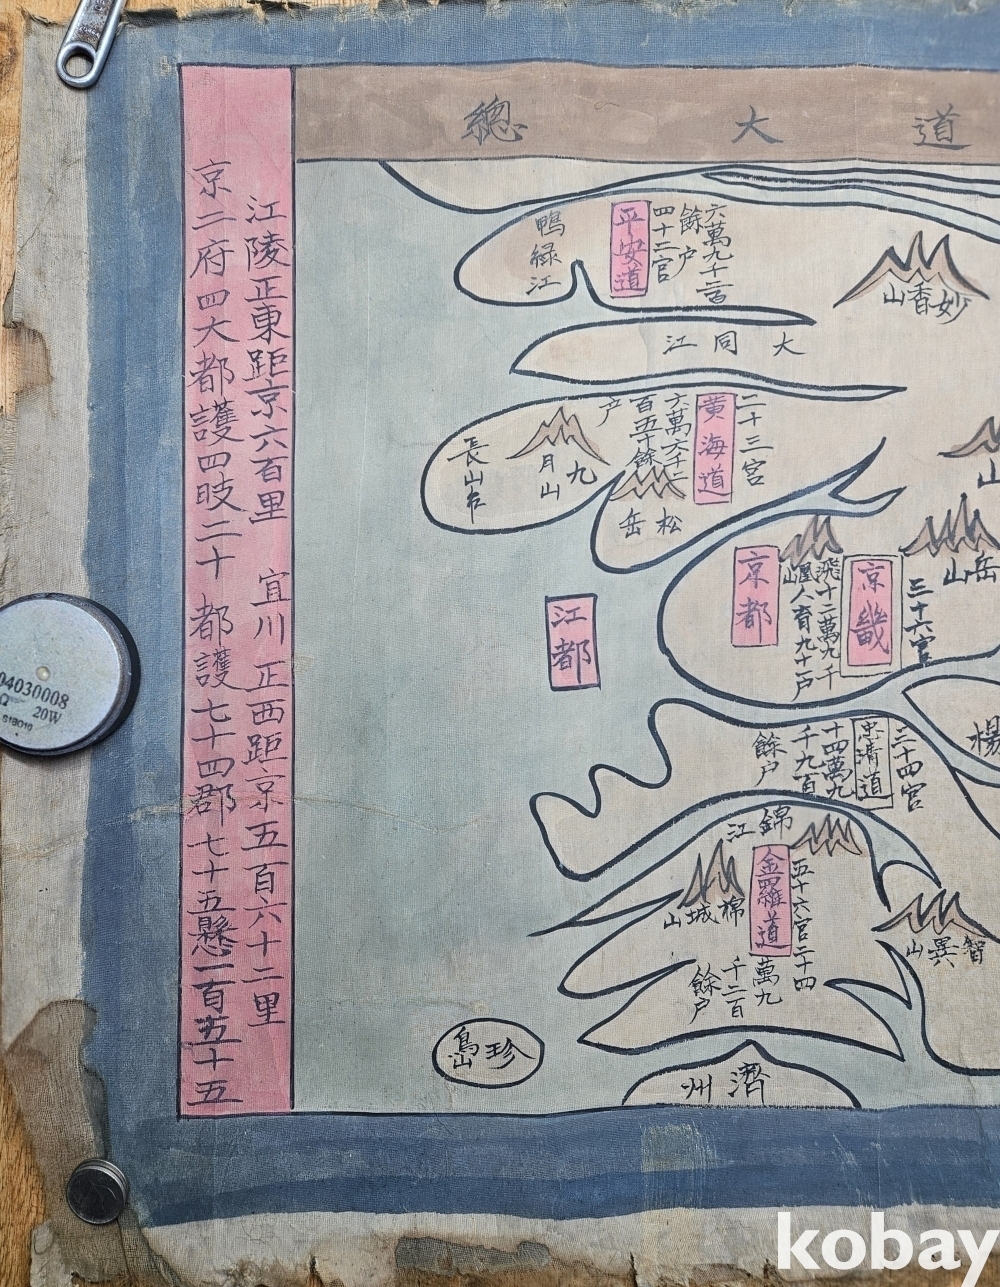 道大總
江陵正東距京六百里 宜川 正西距京五百六十二里
京二府四大都護四牧二十 都護七十四郡七十五懸一百五十五
妙香山
六萬九千二百
餘户
四十二官
平安道
鴨緑江
大同江
二十三官
黄海道
六萬六千二
百五十餘
户
九月山
長山串
松岳
岳山
山
三十六官
京畿
京都
江都
楊
三十四官
忠清道
十四萬九
千九百
餘户
錦江
五十六官二十四
金羅道
萬九
千二百
餘户
棉城山
智異山
珍島
濟州
04030008
20W
kobay